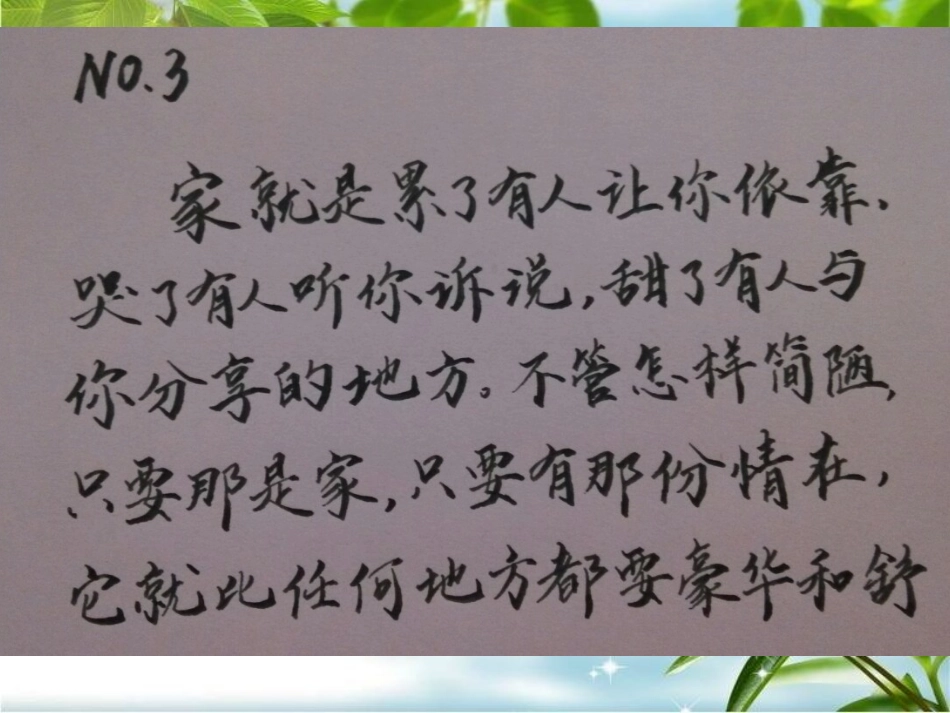 NO.3
家就是累了有人让你依靠、
哭了有人听你诉说,甜了有人与
你分享的地方。不管怎样简陋,
只要那是家,只要有那份情在,
它就比任何地方都要豪华和舒